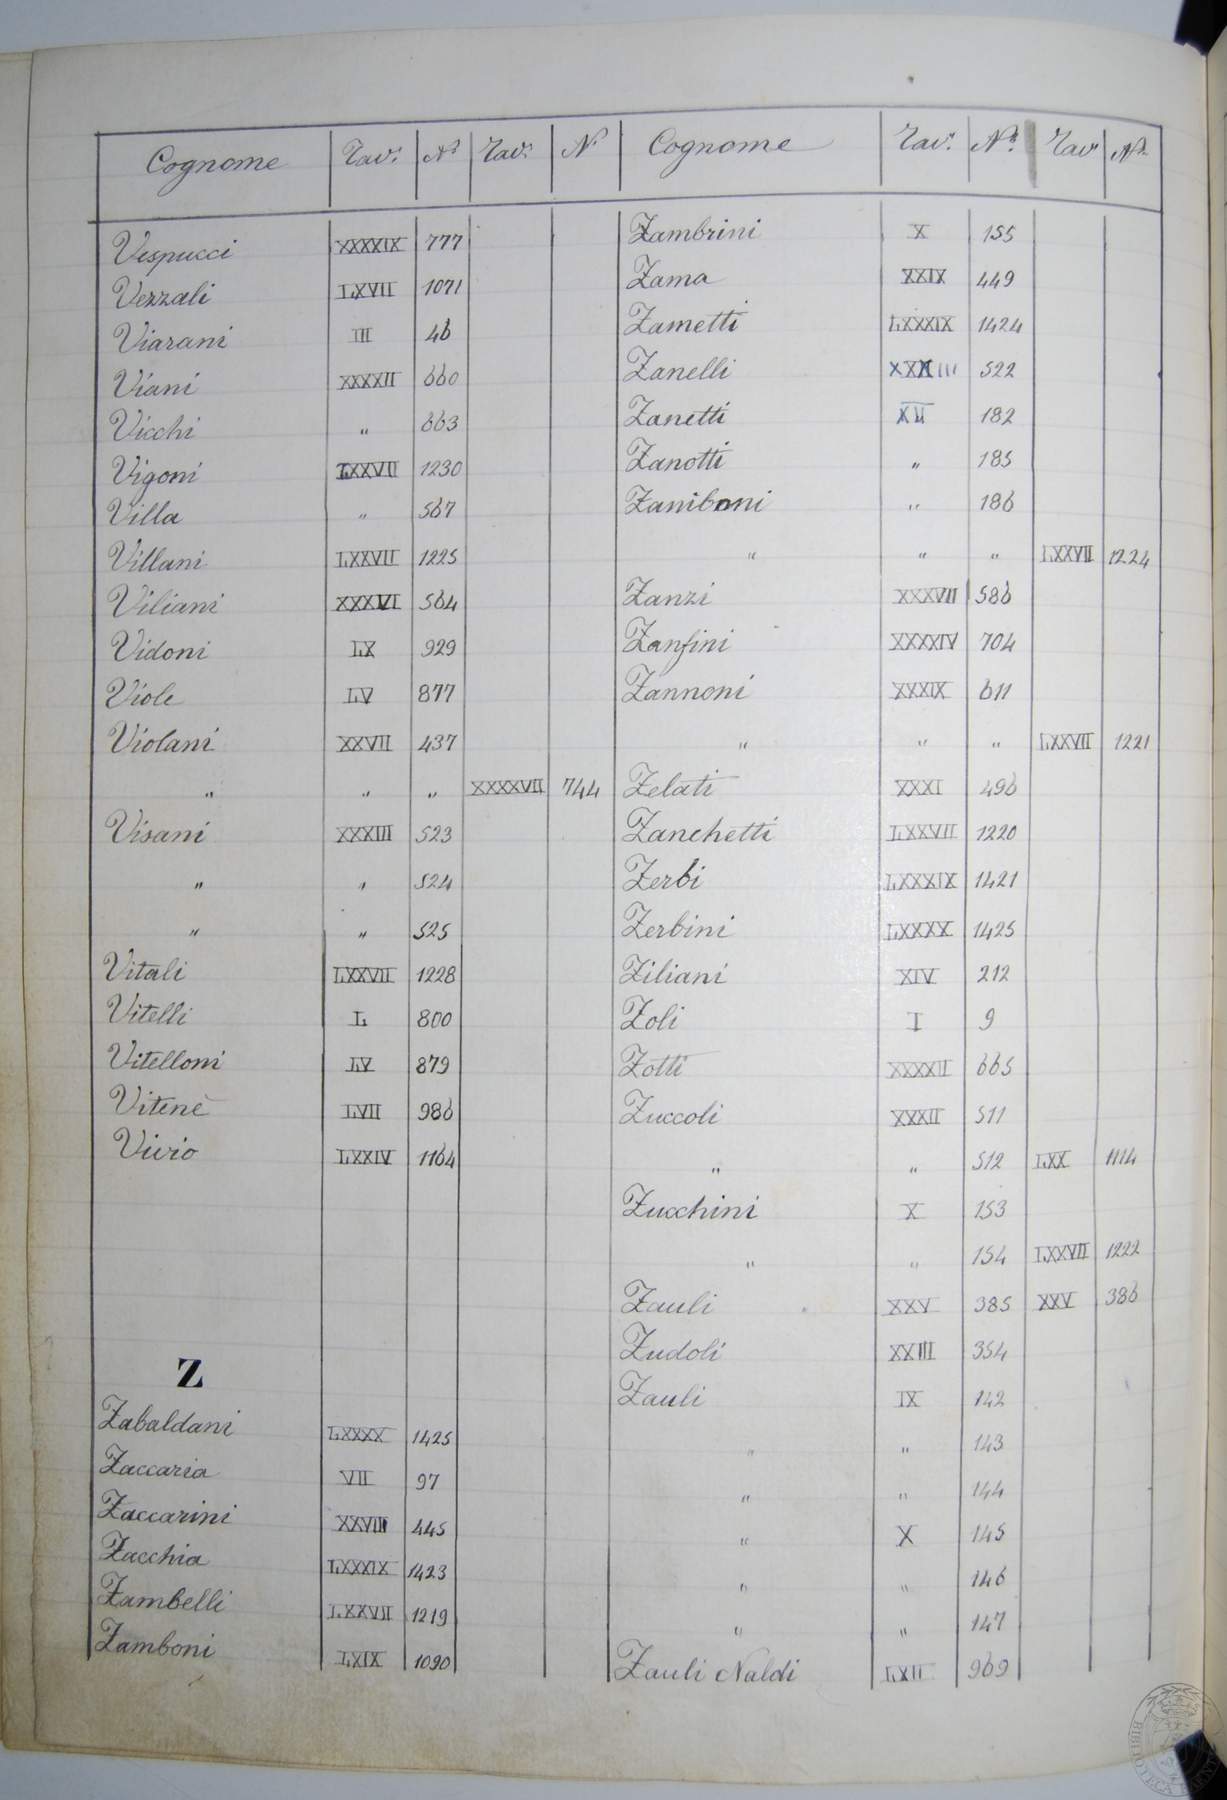 Cognome Tav. N.º Tav. N.
Vespucci XXXXIX 777
Vezzali LXVII 1071
Viarani III 46
Viani XXXXII 660
Vicchi " 663
Vigoni LXXVII 1230
Villa " 567
Villani LXXVII 1225
Viliani XXXVI 564
Vidoni LX 929
Viole LV 877
Violani XXVII 437
" " " XXXXVII 744
Visani XXXIII 523
" " 524
" " 525
Vitali LXXVII 1228
Vitelli L 800
Vitelloni LV 879
Vitenè LVII 986
Vivio LXXIV 1164
Z
Zabaldani LXXXX 1425
Zaccaria VII 97
Zaccarini XXVIII 445
Zacchia LXXXIX 1423
Zambelli LXXVII 1219
Zamboni LXIX 1090
Cognome Tav. N.º Tav N.º
Zambrini X 155
Zama XXIX 449
Zametti LXXXIX 1424
Zanelli XXXIII 522
Zanetti XII 182
Zanotti " 185
Zaniboni " 186
" " " LXXVII 1224
Zanzi XXXVII 586
Zanfini XXXXIV 704
Zannoni XXXIX 611
" " " LXXVII 1221
Zelati XXXI 496
Zanchetti LXXVII 1220
Zerbi LXXXIX 1421
Zerbini LXXXX 1425
Ziliani XIV 212
Zoli I 9
Zotti XXXXII 665
Zuccoli XXXII 511
" " 512 LXX 1114
Zucchini X 153
" " 154 LXXVII 1222
Zauli XXV 385 XXV 386
Zudoli XXIII 354
Zauli IX 142
" " 143
" " 144
" X 145
" " 146
" " 147
Zauli Naldi LXII 969